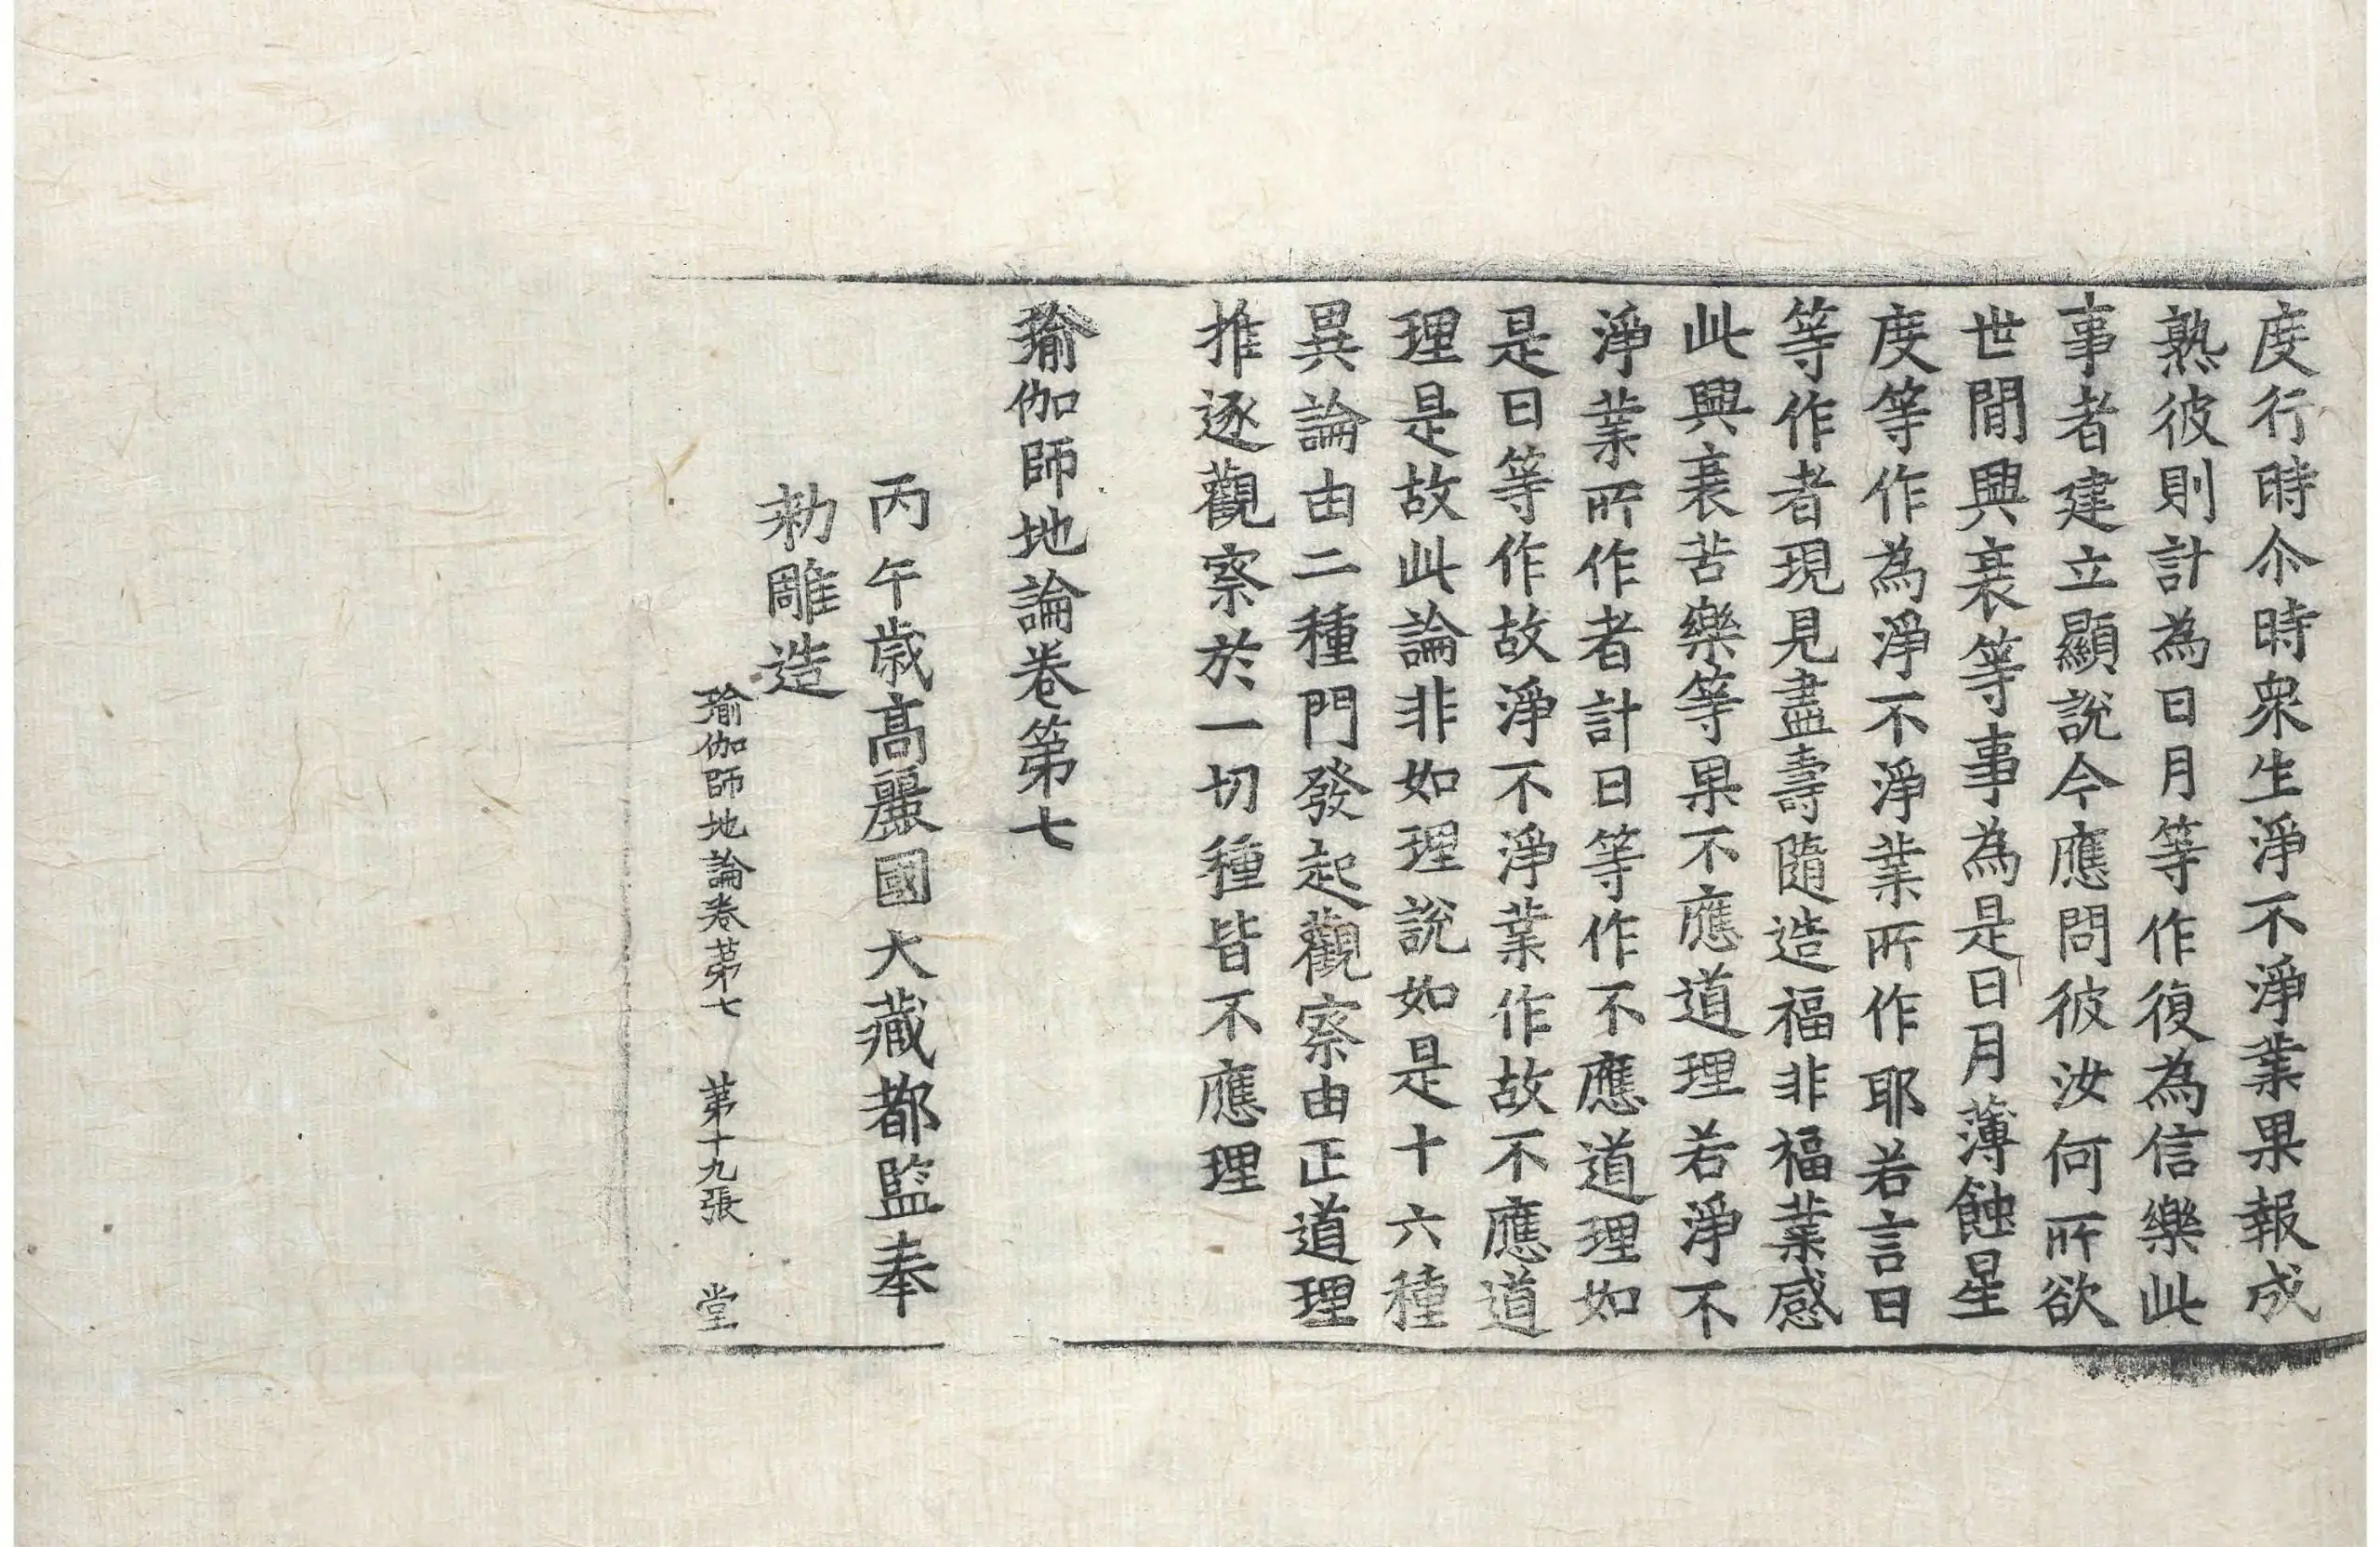 度行時尒時衆生淨不淨業果報成
熟彼則計為日月等作復為信樂此
事者建立顯說今應問彼汝何所欲
世閒興衰等事為是日月薄蝕星
度等作為淨不淨業所作耶若言日
等作者現見盡壽隨造福非福業感
此興衰苦樂等果不應道理若淨不
淨業所作者計日等作不應道理如
是日等作故淨不淨業作故不應道
理是故此論非如理說如是十六種
異論由二種門發起觀察由正道理
推逐觀察於一切種皆不應理
瑜伽師地論卷第七
丙午歲高麗國大藏都監奉
勑雕造
瑜伽師地論卷苐七 苐十九張 堂